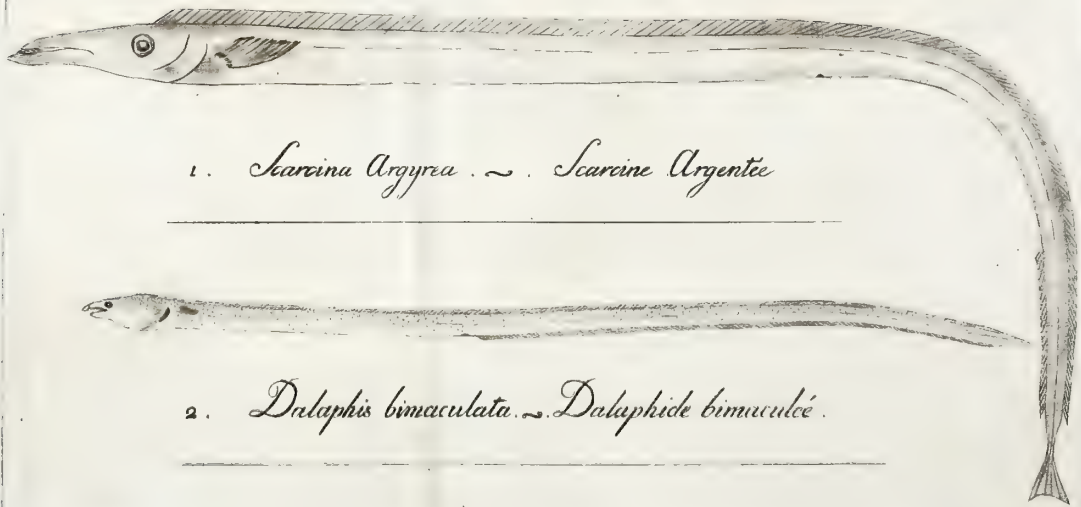 1. Scarcina Argyrea. ~. Scarcine Argentée
2. Dalaphis bimaculata. ~. Dalaphide bimaculé.